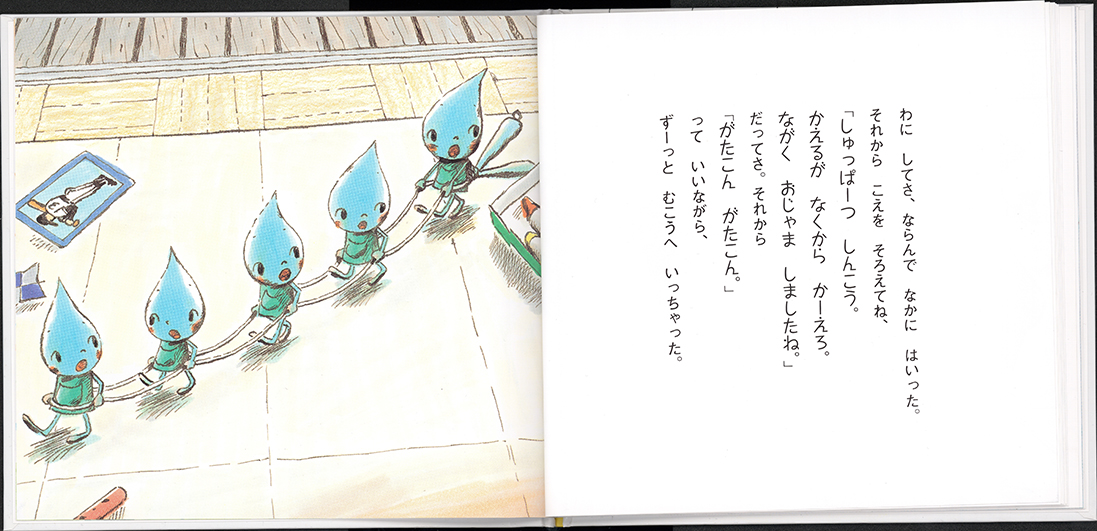 わに してさ、ならんで なかに はいった。
それから こえを そろえてね、
「しゅっぱーつ しんこう。
かえるが なくから かーえろ。
ながく おじゃま しましたね。」
だってさ。それから
「がたこん がたこん。」
って いいながら、
ずーっと むこうへ いっちゃった。